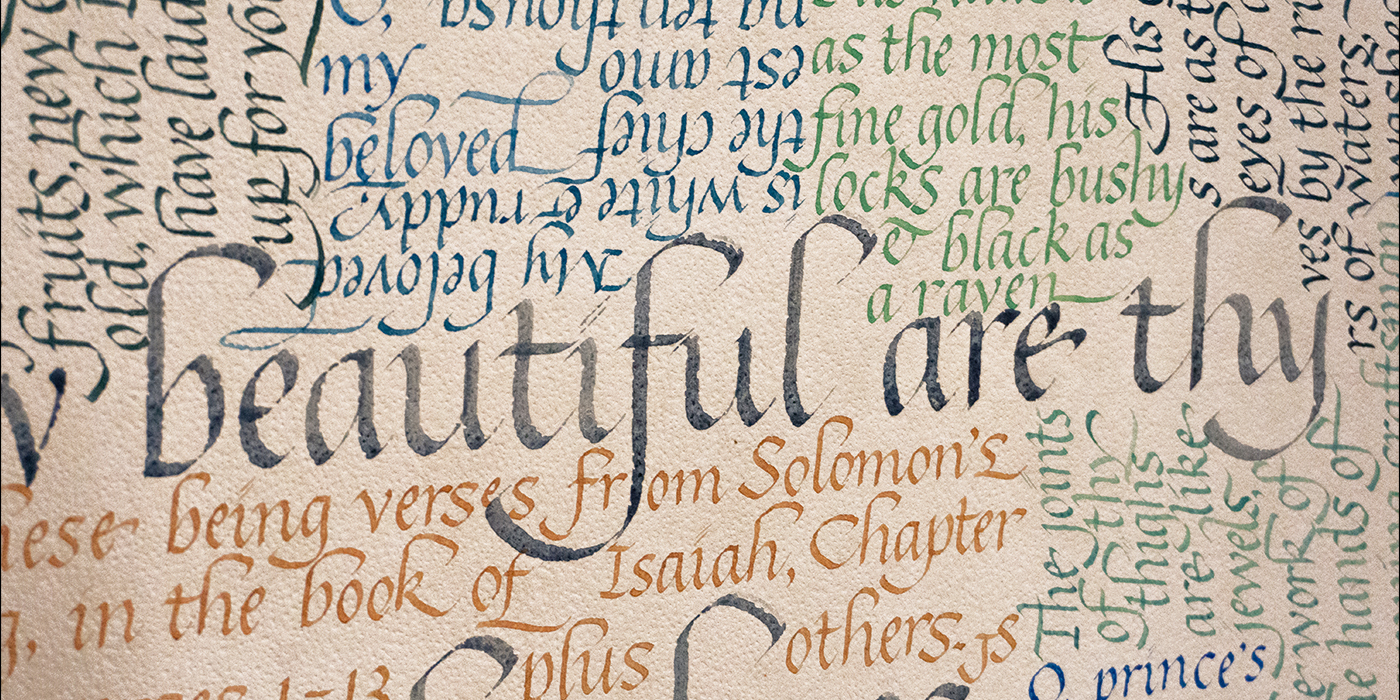 fruits, new
old, which
have laud
up for you
my
beloved
My beloved
is white & ruddy,
the chief
est amo
nd ten thousa
as the most
fine gold, his
locks are bushy
& black as
a raven
His
s are as
eyes of
ves by the
rs of waters,
craftsman
beautiful are thy
hese being verses from Solomon's
in the book of Isaiah, Chapter
1-13 plus others. js
The joints
of thy
thighs
are like
jewels,
work of
e hands of
O prince's